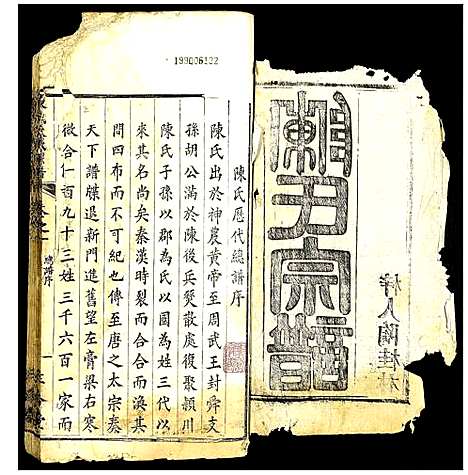 199006122
陳氏宗譜
梓人陶桂
陳氏歷代總譜序
陳氏出於神農黃帝至周武王封舜支
孫胡公滿於陳後兵燹散處復聚潁川
陳氏子孫以郡為氏以國為姓三代以
來其名尚矣秦漢時裂而合合而渙其
間四布而不可紀也傳至唐之太宗奏
天下譜牒退新門進舊望左膏梁右寒
微合仁百九十三姓三千六百一家而
總譜序
一